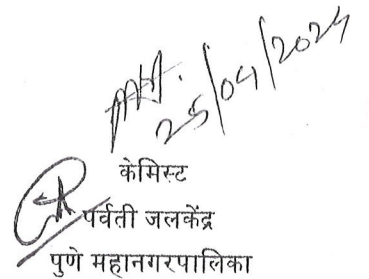 25/04/2024
केमिस्ट
पर्वती जलकेंद्र
पुणे महानगरपालिका